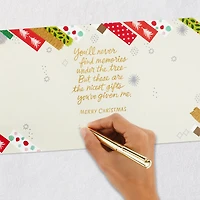 You'll never
find memories
under the tree.
But these are
the nicest gifts
you've given me.
MERRY CHRISTMAS